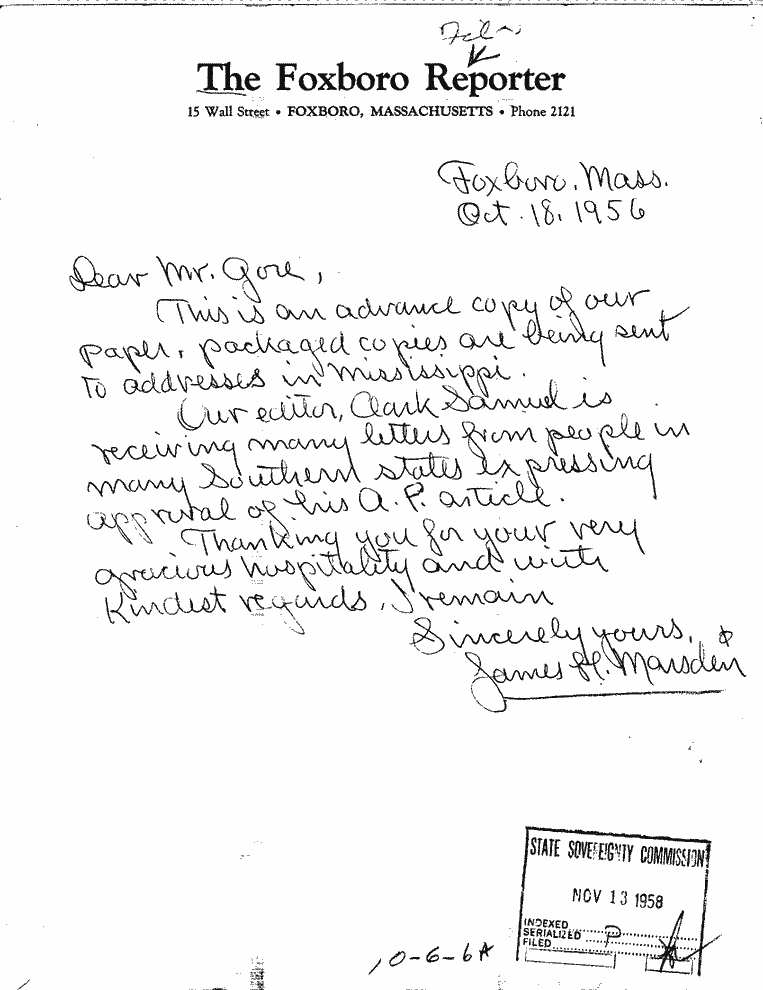 File
The Foxboro Reporter
15 Wall Street • FOXBORO, MASSACHUSETTS • Phone 2121
Foxboro, Mass.
Oct. 18, 1956
Dear Mr. Gore,
This is an advance copy of our
paper, packaged copies are being sent
to addresses in Mississippi.
Our editor, Clark Samuel is
receiving many letters from people in
many Southern states expressing
approval of his A.P. article.
Thanking you for your very
gracious hospitality and with
kindest regards, I remain
Sincerely yours,
James H. Marsden
STATE SOVEREIGNTY COMMISSION
NOV 13 1958
INDEXED
SERIALIZED P
FILED
10-6-6A